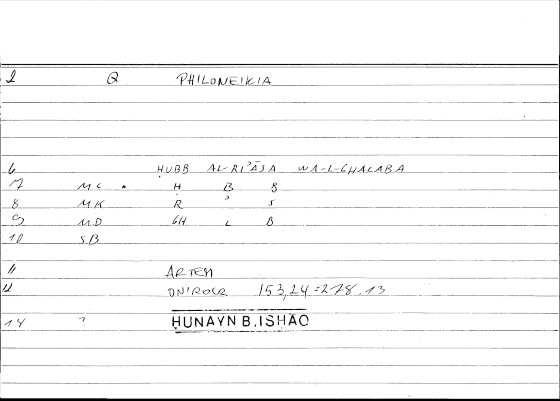 2 Q PHILONEIKIA
6 ḤUBB AL-RI'ĀSA WA-L-GHALABA
7 MC . Ḥ B B
8 MK R ' S
9 MD GH L B
10 SB
11 ARTEM
12 ONIROCR 153,24=278.13
14 ? HUNAYN B.ISHĀQ